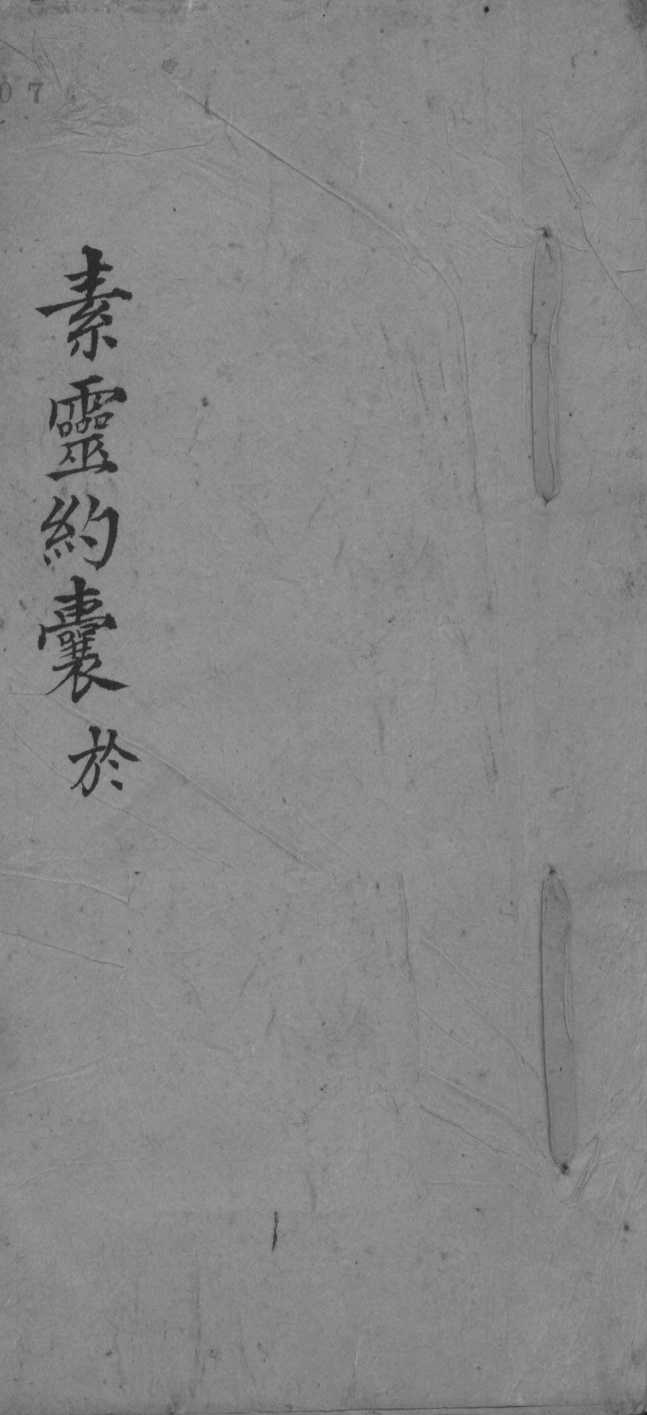 素靈約囊於
07